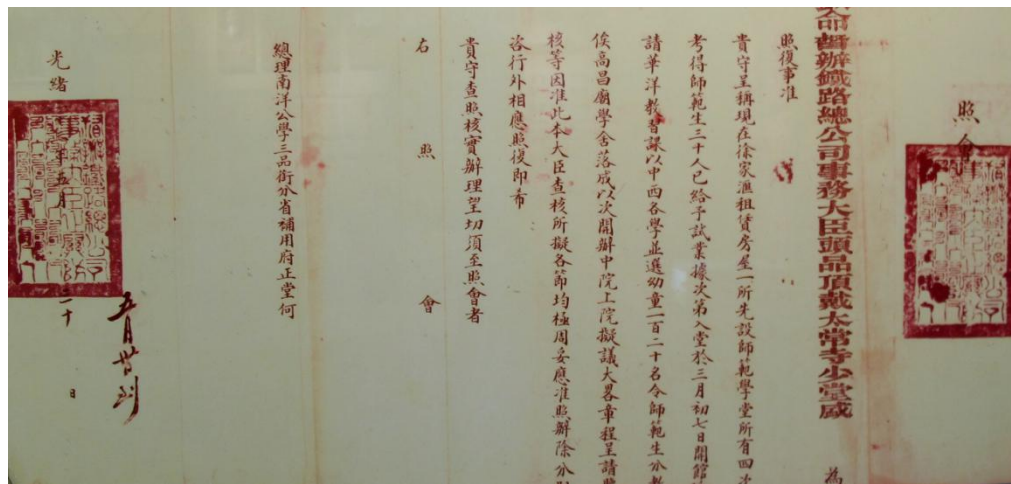 照會
命督辦鐵路總公司事務大臣頭品頂戴太常寺少堂盛
為
照復事准
貴守呈稱現在徐家滙租賃房屋一所先設師範學堂所有四次
考得師範生三十人已給予試業據次第入堂於三月初七日開館
請華洋教習課以中西各學並選幼童一百二十名令師範生分教
俟高昌廟學舍落成以次開辦中院上院擬議大畧章程呈請
核等因准此本大臣查核所擬各節均極周妥應准照辦除分
咨行外相應照復即希
貴守查照核實辦理望切須至照會者
右照會
總理南洋公學三品銜分省補用府正堂何
光緒
五月
二十
日
五月
到